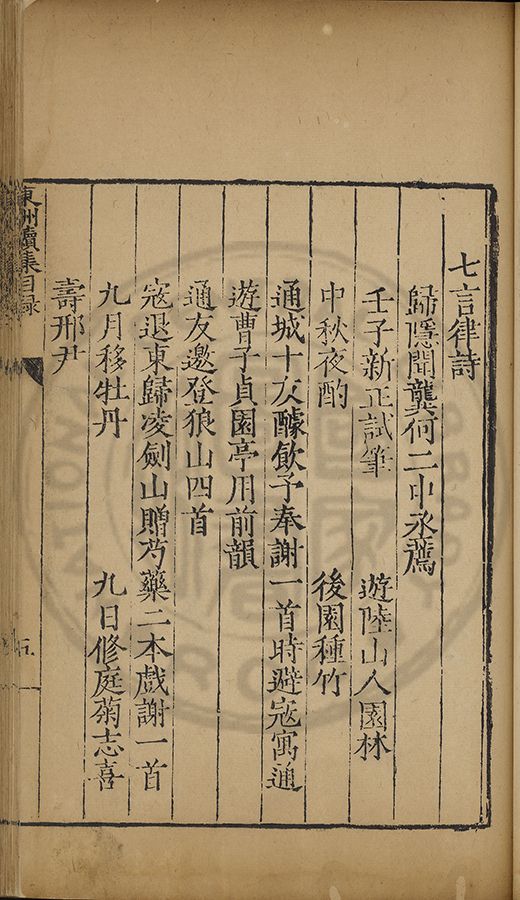 七言律詩
歸隱聞龔何二中丞薦
壬子新正試筆 遊陸山人園林
中秋夜酌 後園種竹
通城十友醵飲予奉謝一首時避寇寓通
遊曹子貞園亭用前韻
通友邀登狼山四首
寇退東歸凌劍山贈芍藥二本戲謝一首
九月移牡丹 九日修庭菊志喜
壽邢尹
東洲續集目錄
五